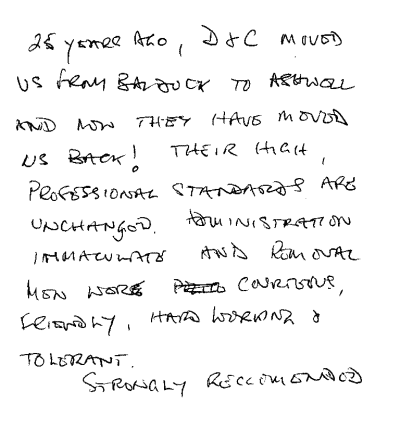 25 YEARS AGO, D & C MOVED
US FROM BALDOCK TO ASHWELL
AND NOW THEY HAVE MOVED
US BACK! THEIR HIGH,
PROFESSIONAL STANDARDS ARE
UNCHANGED. ADMINISTRATION
IMMACULATE AND REMOVAL
MEN WERE COURTEOUS,
FRIENDLY, HARD WORKING &
TOLERANT.
STRONGLY RECCOMENDED